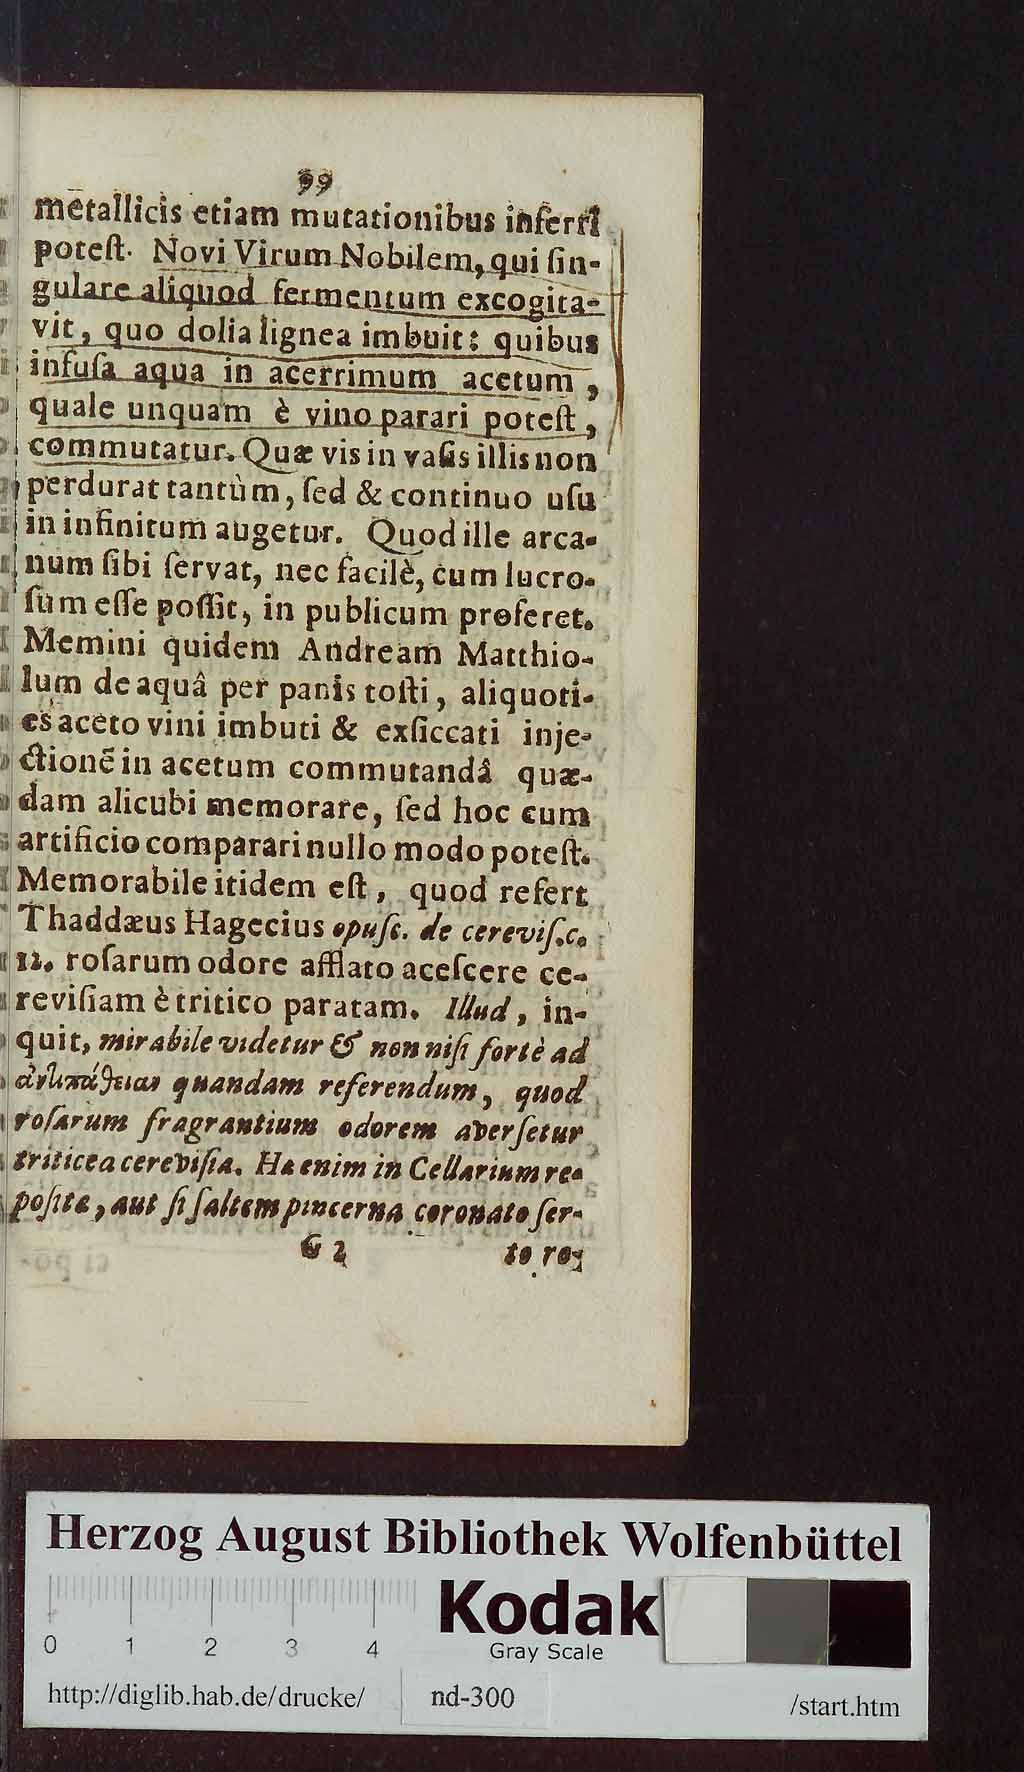 99
mētallicis etiam mutationibus inferri
poteſt. Novi Virum Nobilem, qui ſin-
gulare aliquod fermentum excogita-
vit, quo dolia lignea imbuit: quibus
infuſa aqua in acerrimum acetum,
quale unquam è vino parari poteſt,
commutatur. Quæ vis in vaſis illis non
perdurat tantùm, ſed & continuo uſu
in infinitum augetur. Quod ille arca-
num ſibi ſervat, nec facilè, cum lucro-
ſum eſſe poſſit, in publicum proferet.
Memini quidem Andream Matthio-
lum de aquâ per panis toſti, aliquoti-
es aceto vini imbuti & exſiccati inje-
ctionē in acetum commutandâ quæ-
dam alicubi memorare, ſed hoc cum
artificio comparari nullo modo poteſt.
Memorabile itidem eſt, quod refert
Thaddæus Hagecius opuſc. de cereviſ. c.
11. roſarum odore afflato aceſcere ce-
reviſiam è tritico paratam. Illud, in-
quit, mirabile videtur & non niſi fortè ad
ἀντιπάθειαν quandam referendum, quod
roſarum fragrantium odorem averſetur
triticea cereviſia. Hæ enim in Cellarium re-
poſitæ, aut ſi ſaltem pincerna coronato ſer-
G 2 to ro-
Herzog August Bibliothek Wolfenbüttel
0 1 2 3 4
Kodak
Gray Scale
http://diglib.hab.de/drucke/ nd-300 /start.htm